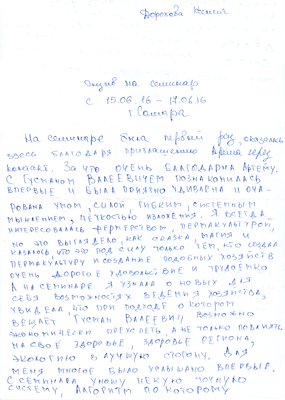 Дорохова
Отзыв на семинар
с 15.06.16 – 17.06.16
г. Самара
На семинаре была первый раз, оказалась
здесь благодаря приглашению Артёма
За что очень благодарна Артёму.
С Гусманом Валеевичем познакомилась
впервые и был приятно удивлена и оча-
рована умом, силой, гибким, системным
мышлением, чёткостью изложения. Я всегда
интересовалась фермерством, пермакультурой,
но это выглядело, как сказка, магия и
казалось, что это под силу только тем, кто создал
пермакультуру и создание подобных хозяйств
очень дорогое удовольствие и трудоёмко
А на семинаре я узнала о новых для
себя возможностях ведения хозяйства,
увидела, что при подходе о котором
вещает Гусман Валеевич возможно
экономически преуспеть, а не только повлиять
на своё здоровье, здоровье региона,
экологию в лучшую сторону. Для
меня многое было услышано впервые.
С семинара уношу некую точную
систему, алгоритм по которому